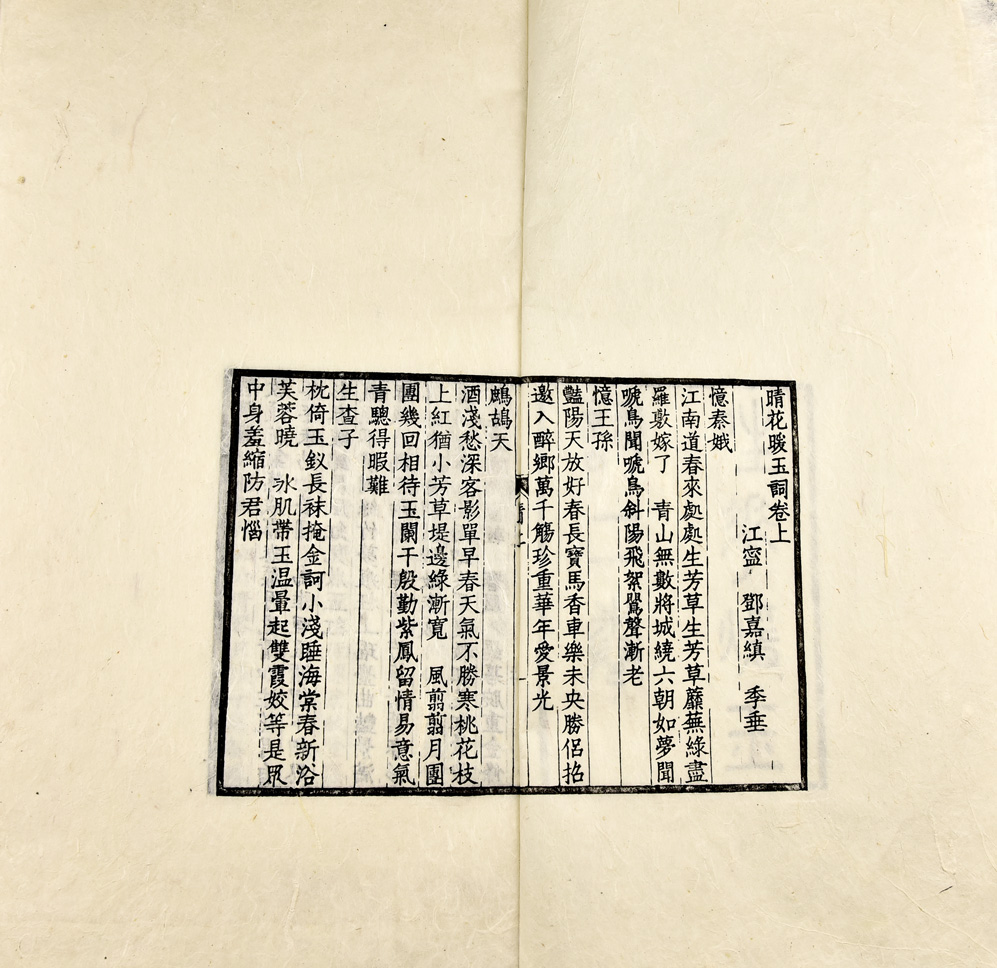 晴花暖玉詞卷上
江寍 鄧嘉縝 季垂
憶秦娥
江南道春來處處生芳草生芳草蘼蕪綠盡
羅敷嫁了 青山無數將城繞六朝如夢聞
嗁鳥聞嗁鳥斜陽飛絮鶯聲漸老
憶王孫
豔陽天放好春長寶馬香車樂未央勝侶招
邀入醉鄉萬千觴珍重華年愛景光
鷓鴣天
酒淺愁深客影單早春天氣不勝寒桃花枝
上紅猶小芳草堤邊綠漸寬 風翦翦月團
團幾回相待玉闌干殷勤紫鳳留情易意氣
青驄得暇難
生查子
枕倚玉釵長袜掩金訶小淺睡海棠春新浴
芙蓉曉 冰肌帶玉温暈起雙霞姣等是眾
中身羞縮防君惱